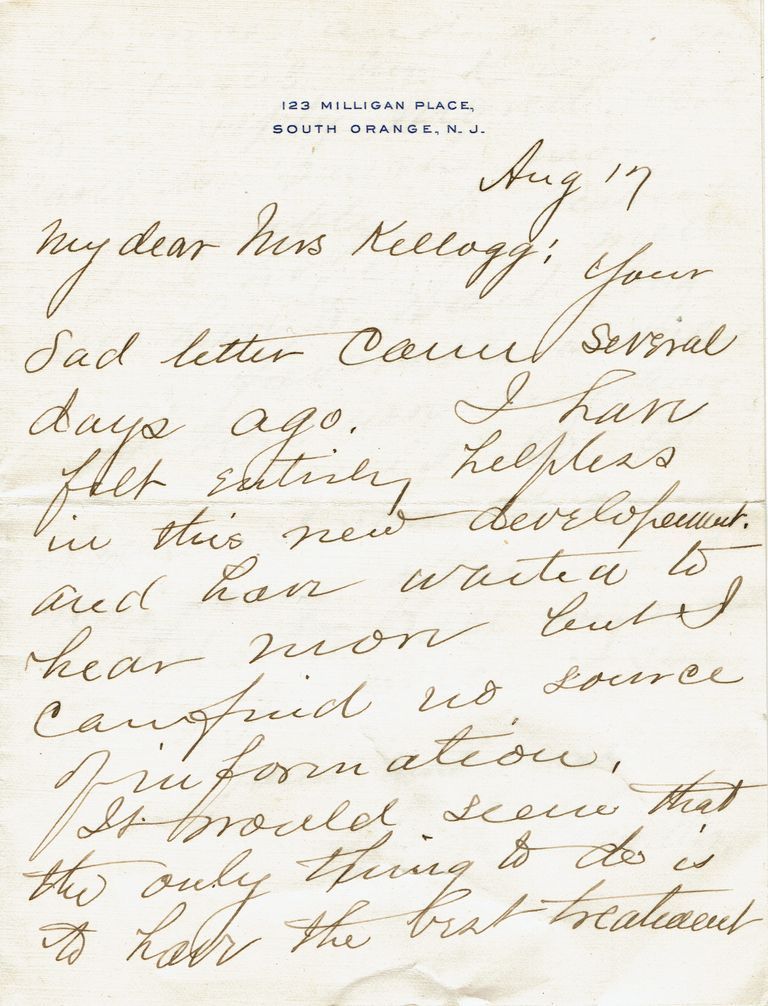 123 MILLIGAN PLACE,
SOUTH ORANGE, N. J.
Aug 17
My dear Mrs Kellogg: Your
sad letter came several
days ago. I have
felt entirely helpless
in this new development.
and have waited to
hear more but I
can find no source
of information.
It would seem that
the only thing to do is
to have the best treatment